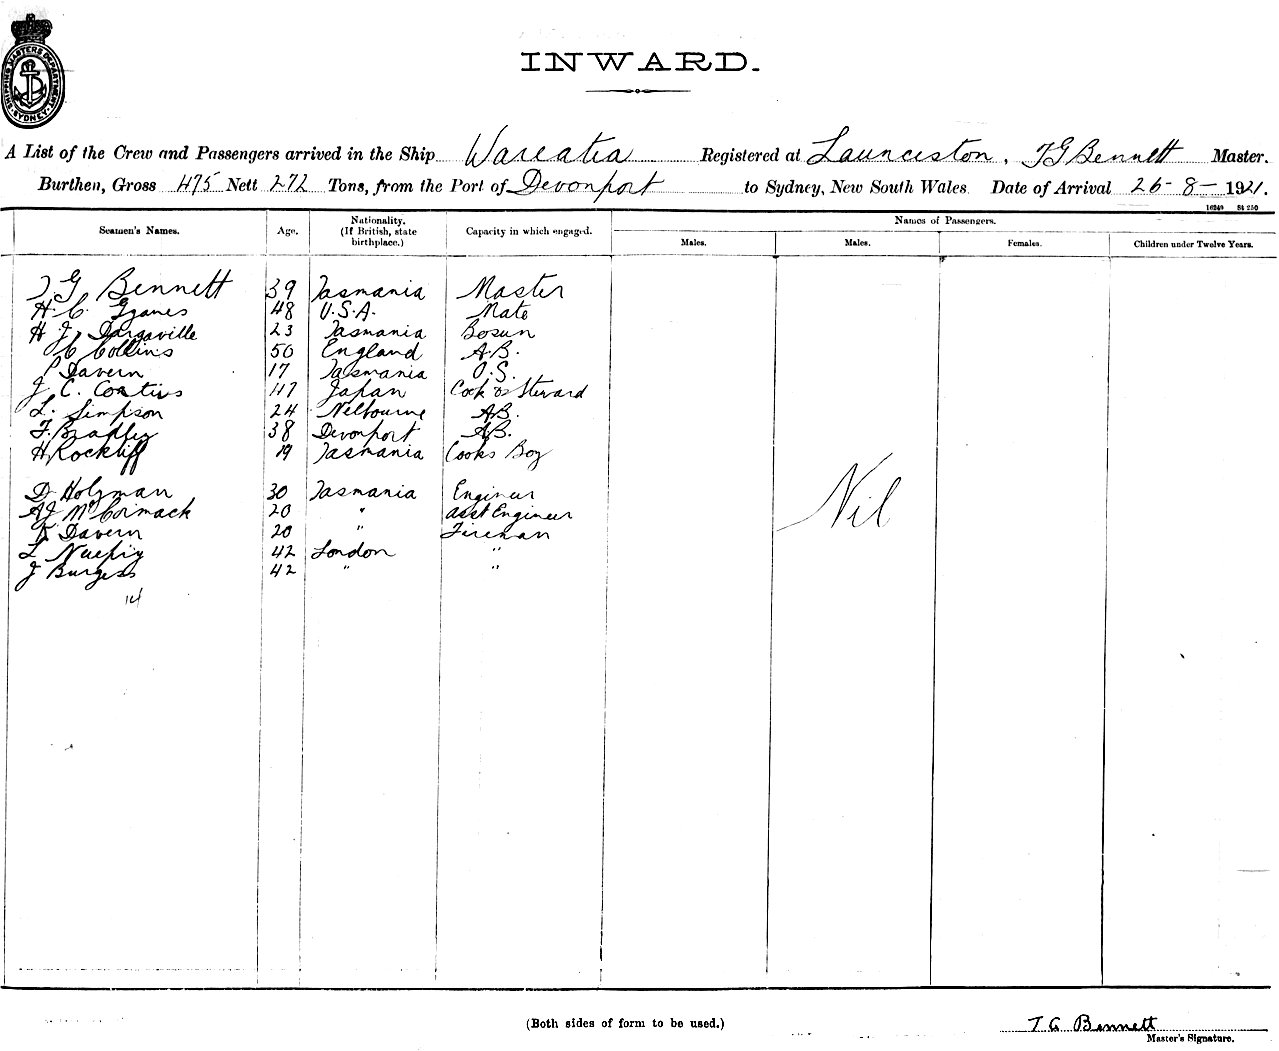 SHIPPING MASTERS DEPARTMENT SYDNEY
INWARD.
A List of the Crew and Passengers arrived in the Ship Wareatea Registered at Launceston, TG Bennett Master.
Burthen, Gross 475 Nett 272 Tons, from the Port of Devonport to Sydney, New South Wales. Date of Arrival 26-8-1921.
16249 84 250
Seamen's Names. Age. Nationality. (If British, state birthplace.) Capacity in which engaged. Names of Passengers.
Males. Males. Females. Children under Twelve Years.
T G Bennett 39 Tasmania Master
H. C. 48 U.S.A. Mate
H J Dargaville 23 Tasmania Bosun
C Collins 50 England A.B.
P Davern 17 Tasmania O.S.
J. C. 47 Japan Cook & Steward
L. Simpson 24 Melbourne AB.
F. Bradley 38 Devonport AB.
H Rockliff 19 Tasmania Cooks Boy
D Holyman 30 Tasmania Engineer
AJ McCormack 20 " asst Engineer
Davern 20 " Fireman
L 42 London "
J Burgess 42 " "
14
Nil
(Both sides of form to be used.)
T G Bennett
Master's Signature.